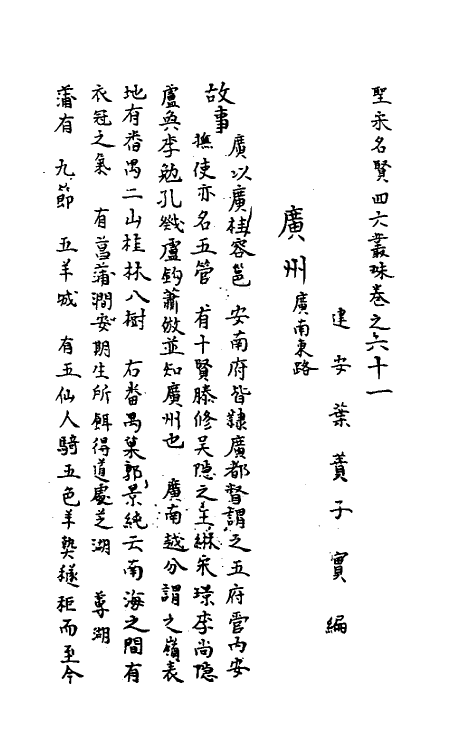 聖宋名賢四六叢珠卷之六十一
建安葉蕡子實編
廣州廣南東路
故事
廣以廣桂容邕　安南府皆隸廣都督謂之五府管內安
撫使亦名五管　有十賢滕修吳隐之王綝宋璟李尚隐
盧奐李勉孔戣盧鈞蕭倣並知廣州也　廣南越分謂之嶺表
地有番禺二山桂林八樹　右番禺菓郭景純云南海之間有
衣冠之氣　有菖蒲澗安期生所餌得道處芝湖　蓴湖
蒲有　九節　五羊城　有五仙人騎五色羊執穟秬而至今